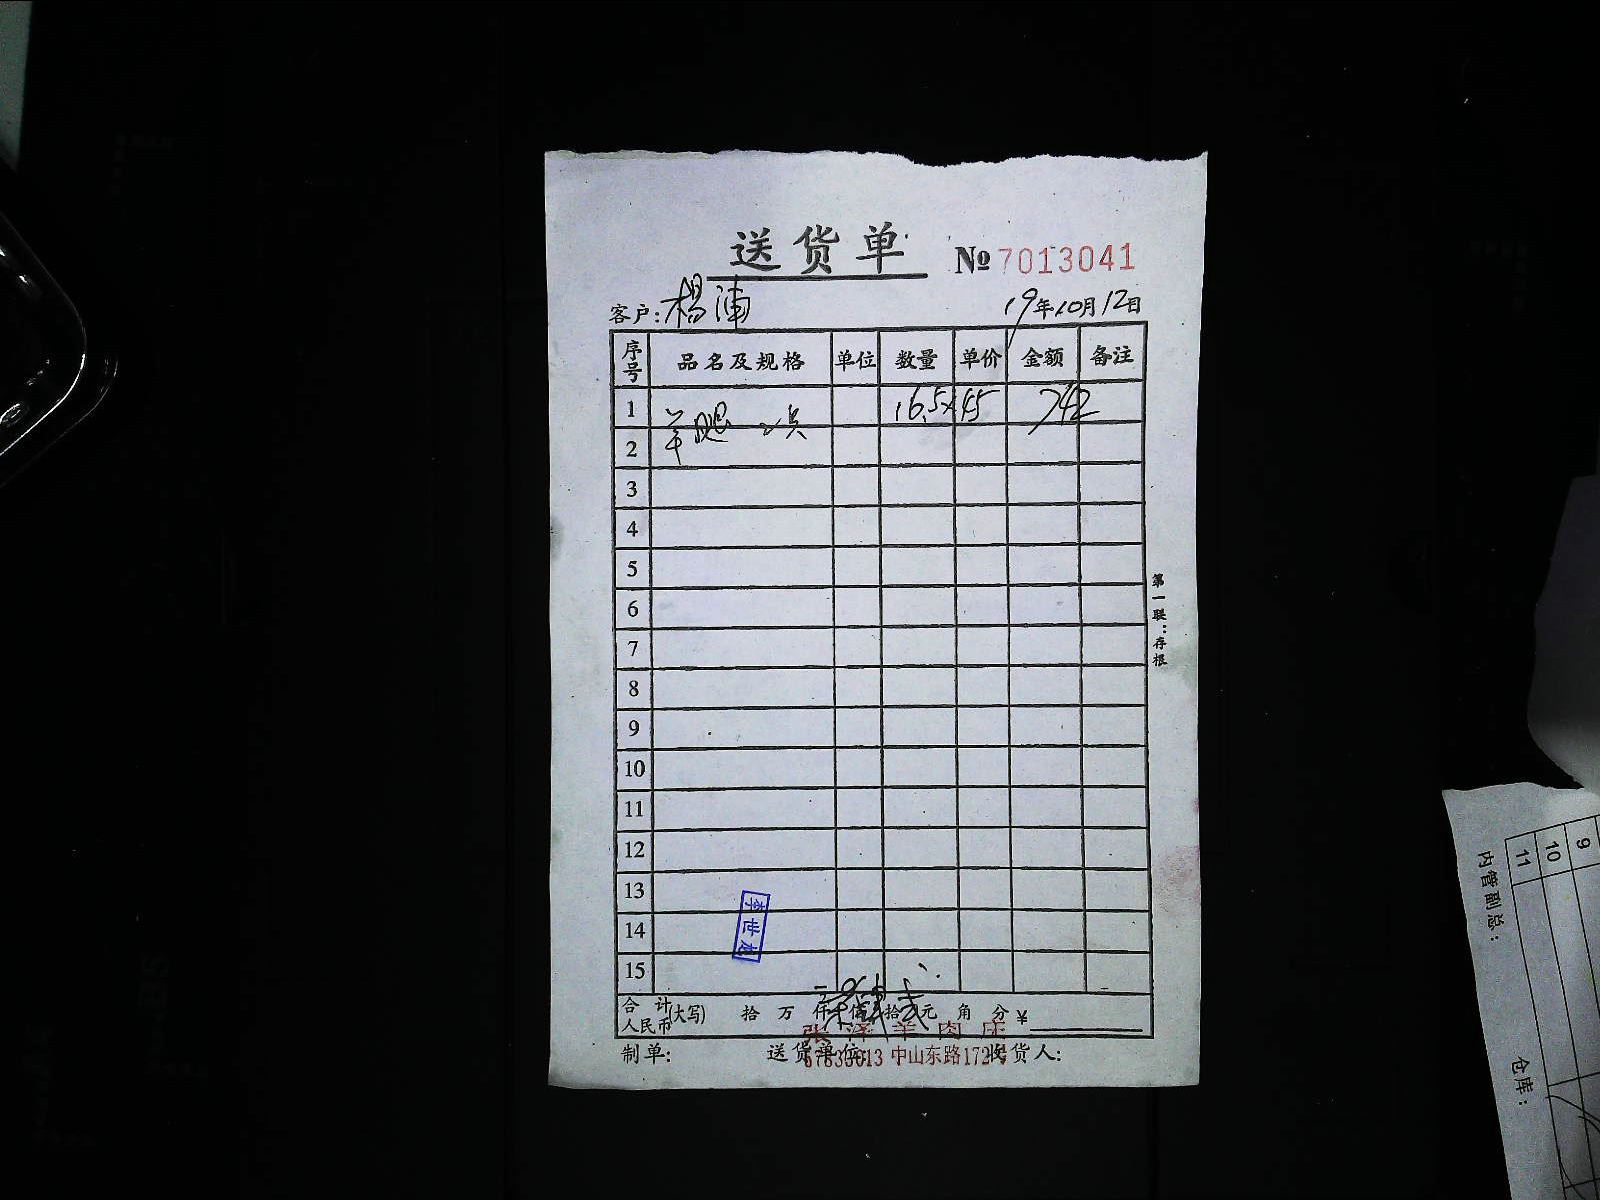 送货单 № 7013041
客户: 杨浦 19年10月12日
序号 品名及规格 单位 数量 单价 金额 备注
1 羊腿 16.5×45 742
2
3
4
5
6
7
8
9
10
11
12
13
14
15
李世超
合计人民币(大写) 拾 万 仟 佰 拾 元 角 分 ¥
张泽羊肉庄
制单: 送货单位: 收货人:
57833013 中山东路172号
第一联:存根
9
10
11
内管副总:
仓库: